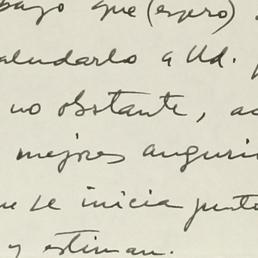 que (espero)
saludarlo a Ud.
no obstante,
mejores auguri
se inicia junto
y estiman.